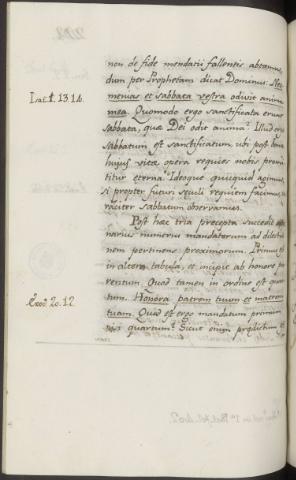 non de fide mendatii fallentis abtamus,
dum per Prophetam dicat Dominus:
menias et sabbata vestra odivit anima
Isai. 1. 13 14.
mea. Quomodo ergo sanctificata erunt
sabbata, quæ Dei odit anima? Illud ergo
sabbatum est sanctificatum, ubi post bona
hujus vitæ opera requies nobis promi
titur eterna. Ideoque quicquid agimus,
si propter futuri seculi requiem facimus,
veraciter sabbatum observamus.
Post hæc tria precepta succedit
narius numerus mandatorum ad dilectio
nem pertinens proximorum. Primus est
in altera tabula, et incipit ab honore pa
rentum. Quod tamen in ordine est quar
tum. Honora patrem tuum et matrem
Exod. 20. 12.
tuam. Quod est ergo mandatum primum
nisi quartum? Sicut enim predictum est